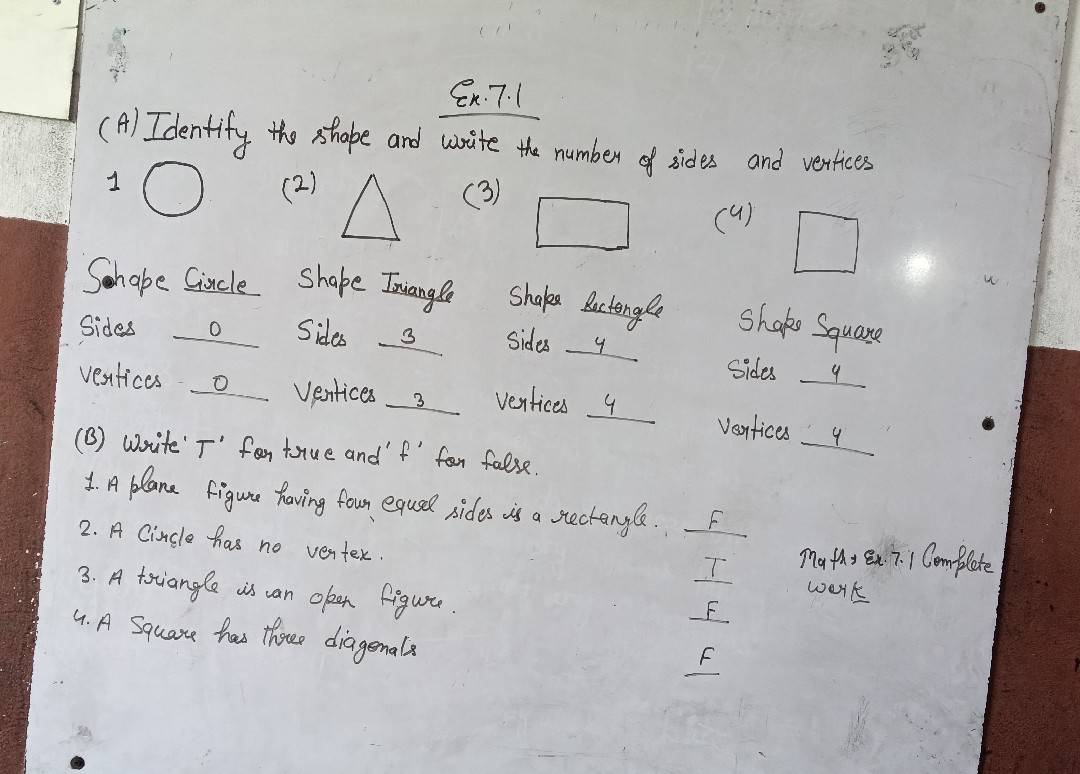 Ex.7.1
(A) Identify the shape and write the number of sides and vertices
1 (2) (3) (4)
Shape Circle Shape Triangle Shape Rectangle Shape Square
Sides 0 Sides 3 Sides 4 Sides 4
Vertices 0 Vertices 3 Vertices 4 Vertices 4
(B) Write 'T' for true and 'f' for false.
1. A plane figure having four equal sides is a rectangle. F
2. A Circle has no vertex. T
3. A triangle is an open figure. F
4. A Square has three diagonals F
Maths Ex.7.1 Complete
work